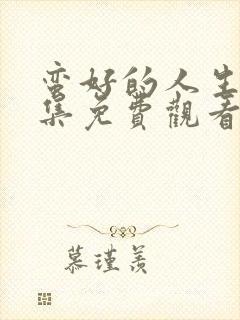 蛮好的人生
集免費觀看
慕瑾羨